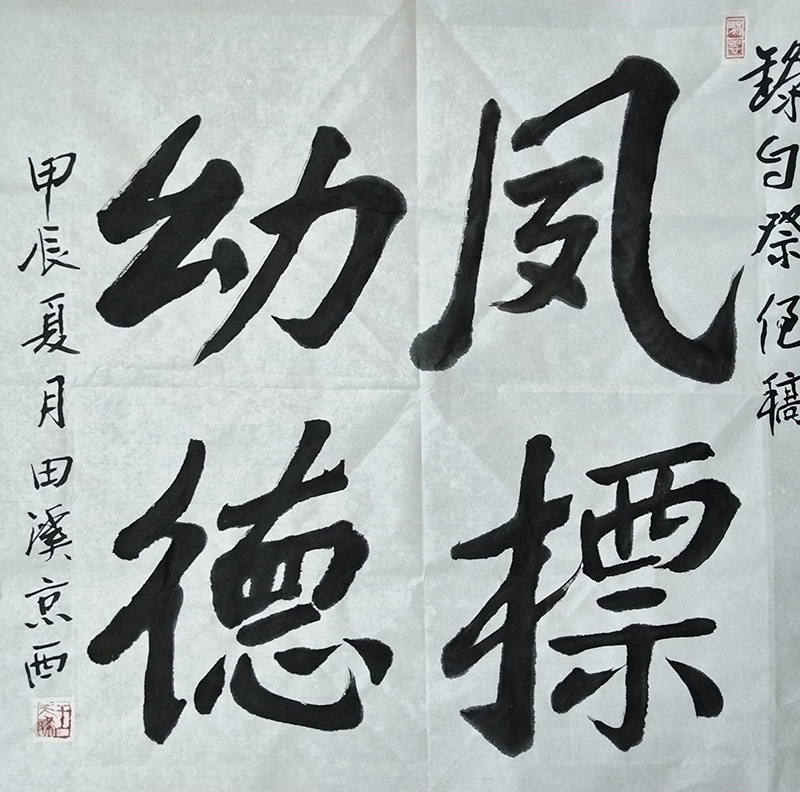 錄自祭侄稿
夙標
幼德
甲辰夏月田溪京西